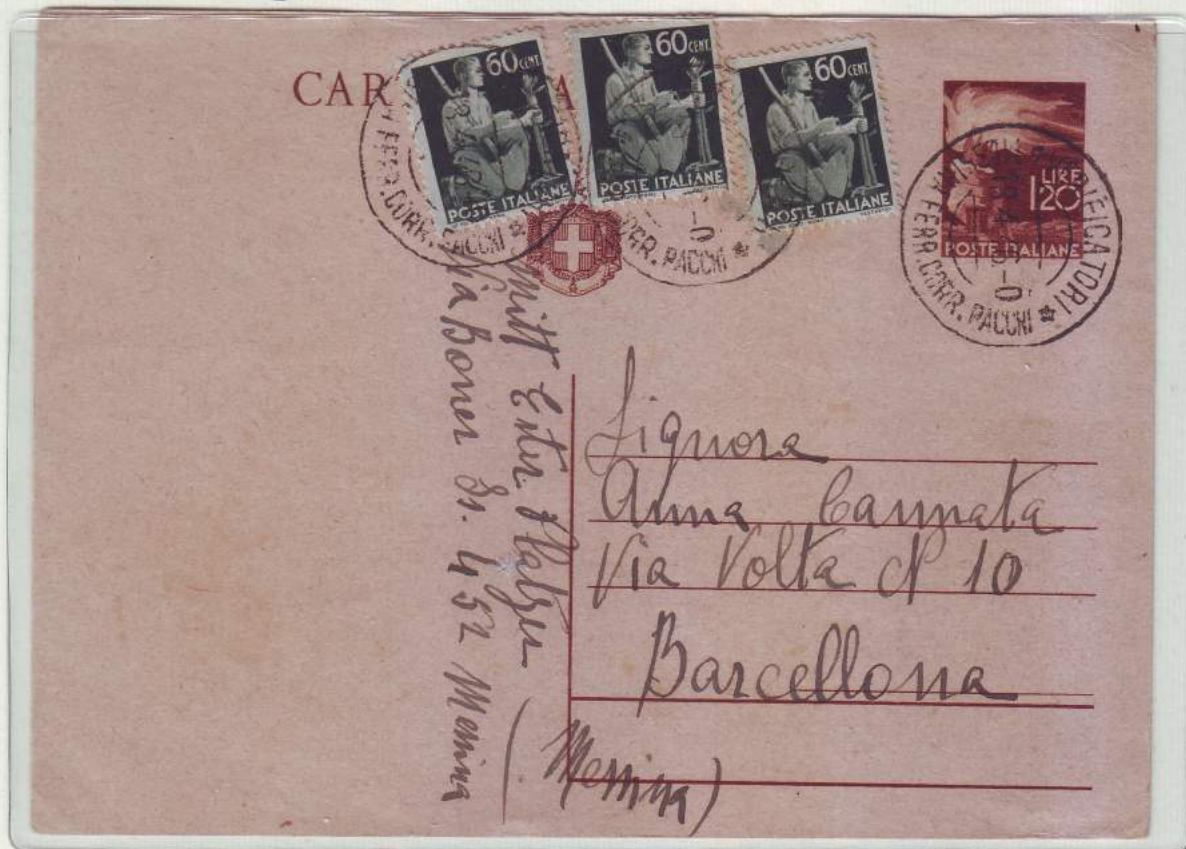 CAR A
60 CENT.
POSTE ITALIANE
60 CENT.
POSTE ITALIANE
60 CENT.
POSTE ITALIANE
LIRE
1,20
POSTE ITALIANE
FERR. CORR. PACCHI
CORR. PACCHI
VERIFICATORI
FERR. CORR. PACCHI
Mitt Ester
Via Boner Is. 452 Messina
Signora
Anna Cannata
Via Volta N 10
Barcellona
(Messina)